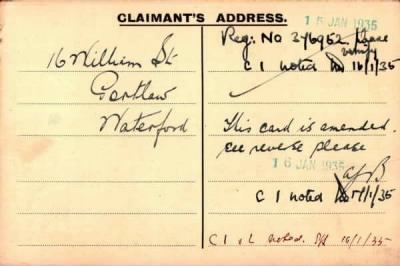 CLAIMANT'S ADDRESS.
16 William St
Portlaw
Waterford
15 JAN 1935
Reg: No 376952. Please
verify
C I noted 16/1/35
This card is amended.
see reverse please
16 JAN 1935
C I noted 17/1/35
C I & L noted. 16/1/35